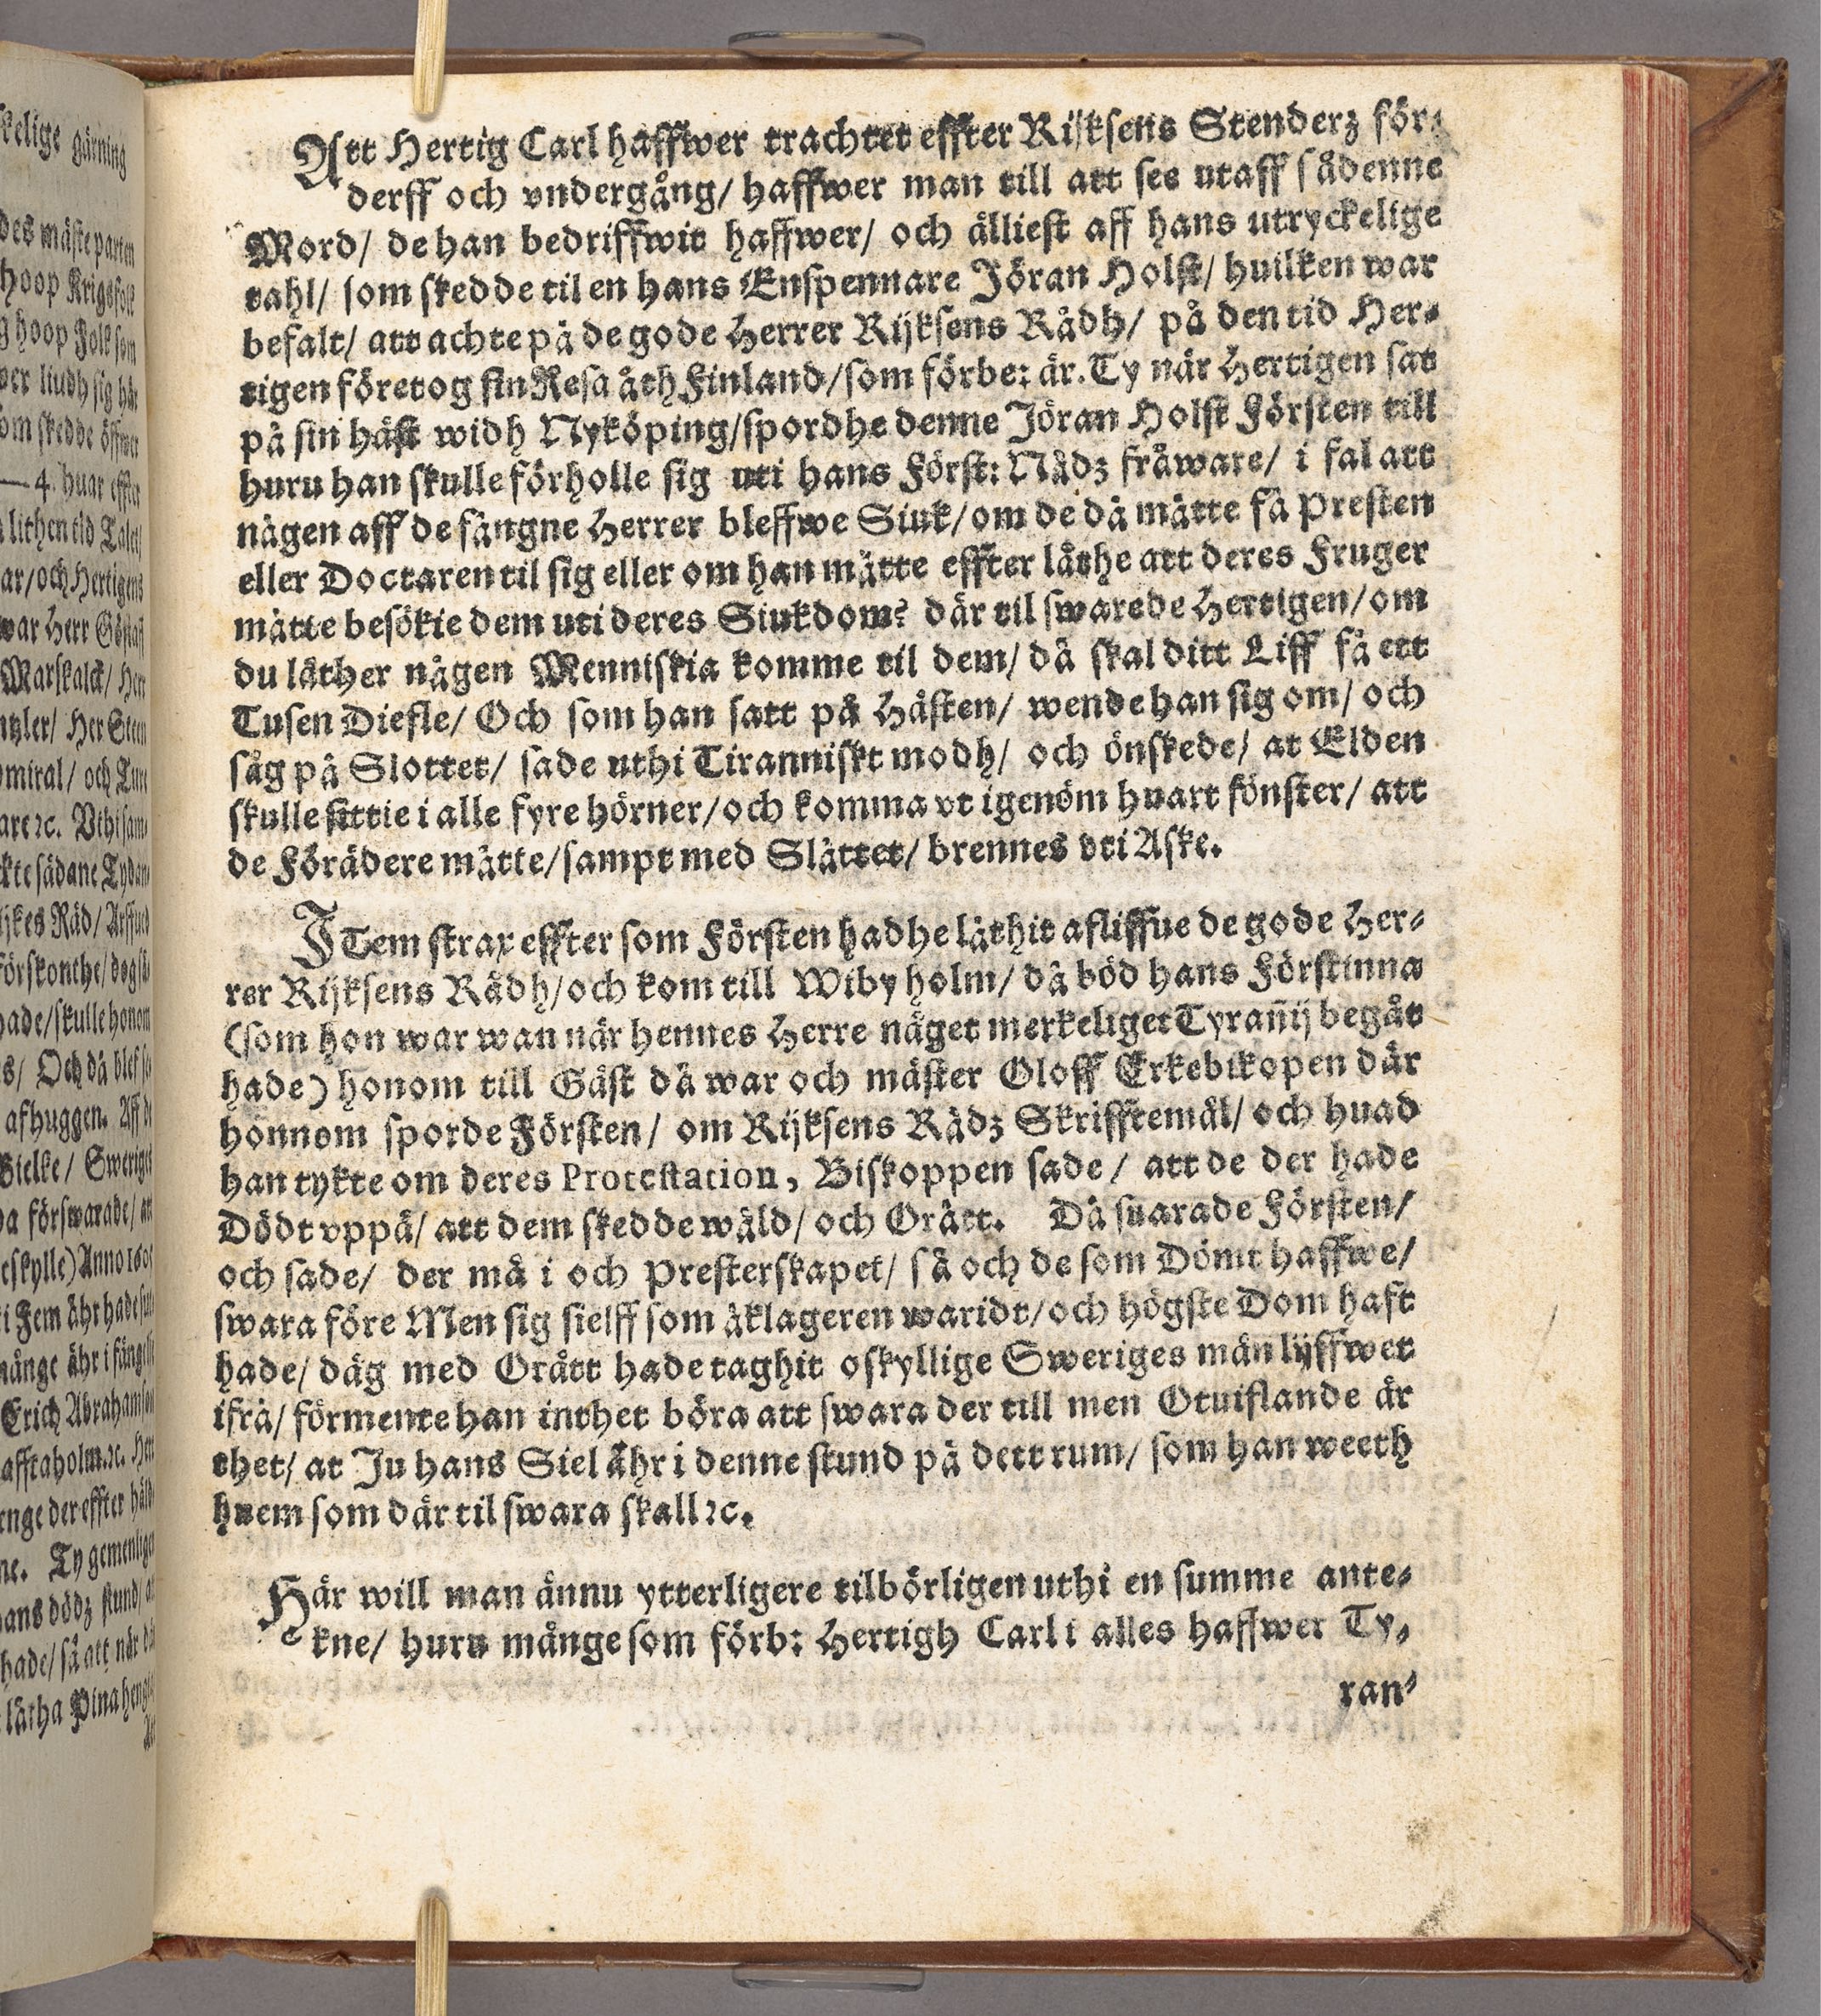 Att Hertig Carl haffwer trachtet effter Rijksens Stenderz för⸗
derff och vndergång/ haffwer man till att see utaff sådenne
Mord/ de han bedriffwit haffwer/ och älliest aff hans utryckelige
tahl/ som skedde til en hans Enspennare Jöran Holst/ huilken war
befalt/ att achte på de gode Herrer Rijksens Rådh/ på den tid Her⸗
tigen företog sin Resa åth Finland/ som förbe: är. Ty när Hertigen sat
på sin häst widh Nyköping/ spordhe denne Jöran Holst Försten till
huru han skulle förholle sig uti hans Först: Nådz fråware/ i fal att
någen aff de fångne Herrer bleffwe Siuk/ om de då måtte få Presten
eller Doctaren til sig eller om han måtte effter låthe att deres Fruger
måtte besökie dem uti deres Siukdom? där til swarede Hertigen/ om
du låther någen Menniskia komme til dem/ då skal ditt Liff få ett
Tusen Diefle/ Och som han satt på Hästen/ wende han sig om/ och
såg på Slottet/ sade uthi Tiranniskt modh/ och önskede/ at Elden
skulle sittie i alle fyre hörner/ och komma vt igenöm huart fönster/ att
de Förädere måtte/ sampt med Slåttet/ brennes vti Aske.
ITem strax effter som Försten hadhe låthit afliffue de gode Her⸗
rer Rijksens Rådh/ och kom till Wiby holm/ då böd hans Förstinna
(som hon war wan när hennes Herre någet merkeliget Tyrañij begåt
hade) honom till Gäst då war och mäster Oloff Erkebikopen där
honnom sporde Försten/ om Rijksens Rådz Skrifftemål/ och huad
han tykte om deres Protestation, Biskoppen sade/ att de der hade
Dödt vppå/ att dem skedde wåld/ och Orått. Då suarade Försten/
och sade/ der må i och Presterskapet/ så och de som Dömt haffwe/
swara före Men sig sielff som åklageren waridt/ och högste Dom haft
hade/ dåg med Orått hade taghit oskyllige Sweriges män lijffwet
ifrå/ förmente han inthet böra att swara der till men Otuiflande är
thet/ at Ju hans Siel åhr i denne stund på dett rum/ som han weeth
huem som där til swara skall ꝛc.
Här will man ännu ytterligere tilbörligen uthi en summe ante⸗
kne/ huru månge som förb: Hertigh Carl i alles haffwer Ty⸗
ran⸗